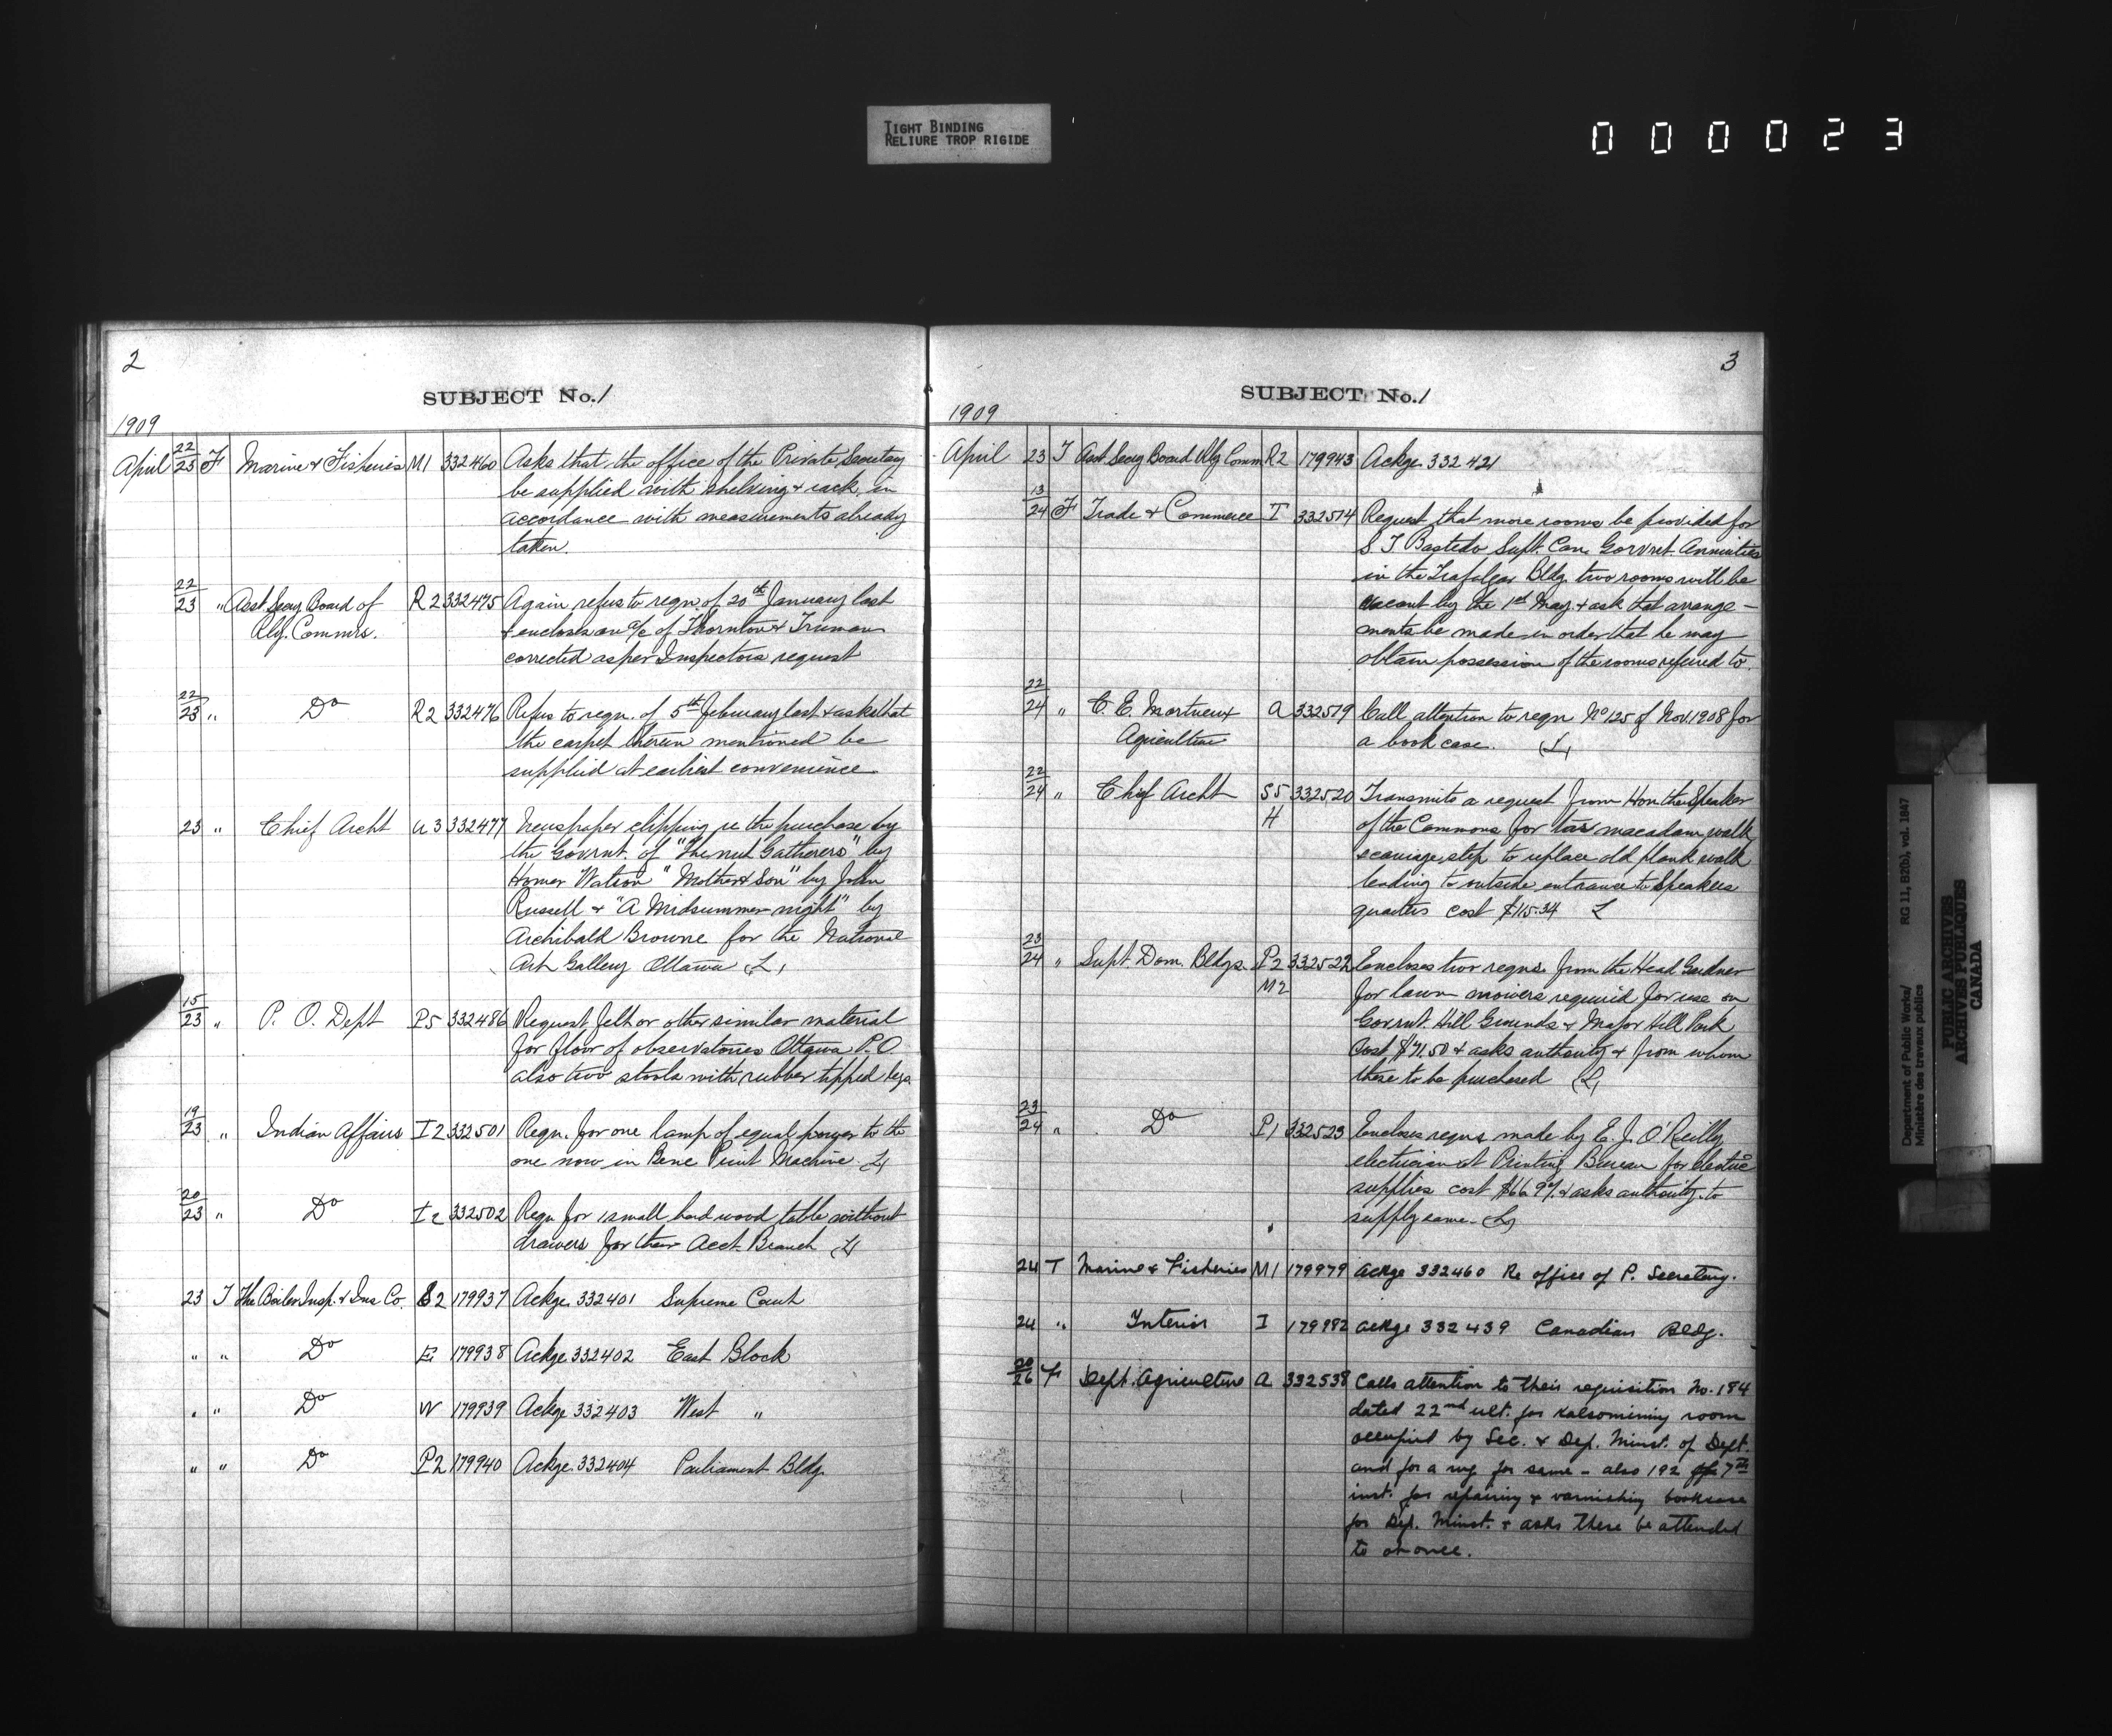 TIGHT BINDING
RELIURE TROP RIGIDE
000023
2
SUBJECT No. 1
1909
April 22/23 F Marine & Fisheries M1 332460 Asks that the office of the Private Secretary
be supplied with shelving & rack in
accordance with measurements already
taken.
22/23 " Asst Secy Board of R2 332475 Again refers to reqn. of 20th January last
Rly. Commrs. & encloses an a/c of Thornton & Truman
corrected as per Inspectors request
22/23 " Do R2 332476 Refers to reqn. of 5th February last & asks that
the carpet therein mentioned be
supplied at earliest convenience.
23 " Chief Archt a3 332477 Newspaper clipping re the purchase by
the Govrnt. of "The nut Gatherers" by
Homer Watson "Mother & Son" by John
Russell & "A Midsummer night" by
Archibald Browne for the National
Art Gallery Ottawa (L)
15/23 " P. O. Dept P5 332486 Request felt or other similar material
for floor of observatories Ottawa P.O.
also two stools with rubber tipped legs
19/23 " Indian Affairs I2 332501 Reqn. for one lamp of equal power to the
one now in Bene Print Machine. (L)
20/23 " Do I2 332502 Reqn for 1 small hard wood table without
drawers for their Acct Branch (L)
23 T The Boiler Insp. & Ins Co. S2 179937 Ackge 332401 Supreme Court
" " Do E 179938 Ackge 332402 East Block
" " Do W 179939 Ackge 332403 West "
" " Do P2 179940 Ackge 332404 Parliament Bldg.
3
SUBJECT No. 1
1909
April 23 T Asst Secy Board Rly Comm R2 179943 Ackge 332421
13/24 F Trade & Commerce T 332514 Request that more rooms be provided for
S T Bastedo Supt. Can. Govrnt. Annuities
in the Trafalgar Bldg. two rooms will be
vacant by the 1st May & ask that arrange-
ments be made in order that he may
obtain possession of the rooms referred to.
22/24 " C. E. Mortureux A 332519 Call attention to reqn No 125 of Nov. 1908 for
Agriculture a book case. (L)
22/24 " Chief Archt S5 332520 Transmits a request from Hon the Speaker
H of the Commons for tar macadam walk
& carriage step to replace old plank walk
leading to outside entrance to Speakers
quarters cost $115.34 L
23/24 " Supt. Dom. Bldgs. P2 332522 Encloses two reqns. from the Head Gardner
M2 for lawn mowers required for use on
Govrnt. Hill Grounds & Major Hill Park
Cost $71.50 & asks authority & from whom
these to be purchased (L)
23/24 " Do P1 332523 Encloses reqns made by E. J. O'Reilly
electrician at Printing Bureau for electric
supplies cost $66.97 & asks authority to
supply same. (L)
24 T Marine & Fisheries M1 179979 Ackge 332460 Re office of P. Secretary.
24 " Interior I 179982 Ackge 332439 Canadian Bldg.
20/26 F Dept. Agriculture A 332538 Calls attention to their requisition No. 184
dated 22nd ult. for kalsomining room
occupied by Sec. & Dep. Minst. of Dept.
and for a rug for same - also 192 of 7th
inst. for repairing & varnishing bookcase
for Dep. Minst. & asks these be attended
to at once.
Department of Public Works/
Ministère des travaux publics
RG 11, B2(b), vol. 1847
PUBLIC ARCHIVES
ARCHIVES PUBLIQUES
CANADA